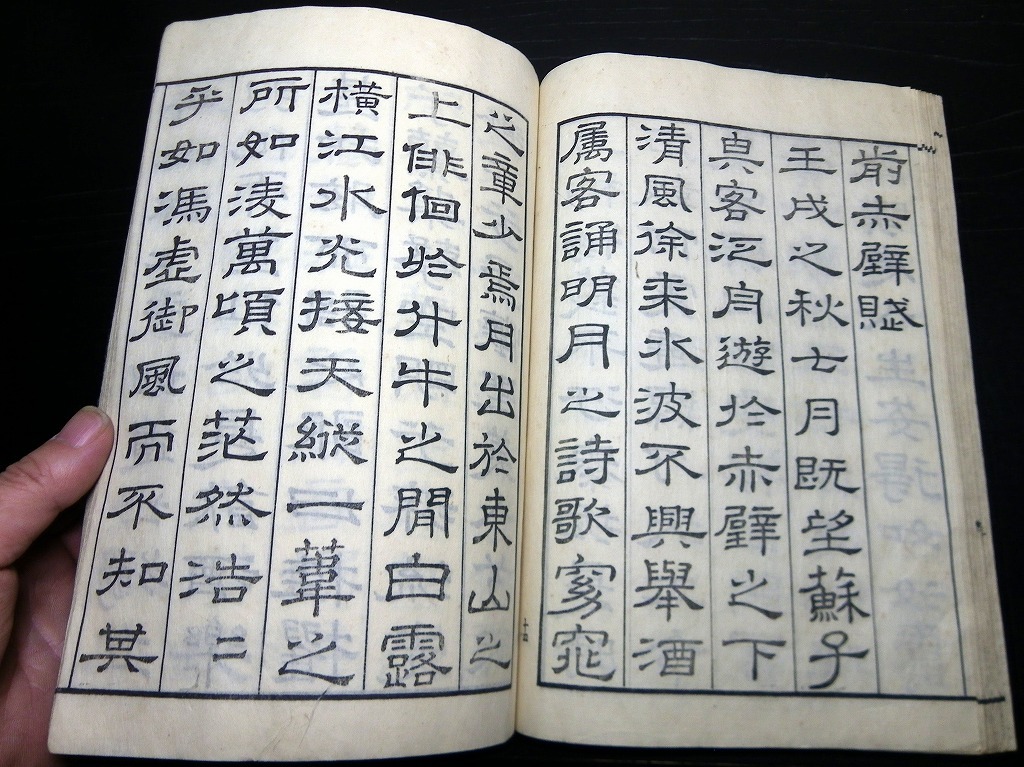 前赤壁賦
壬戌之秋七月既望蘇子
與客泛舟遊於赤壁之下
清風徐来水波不興舉酒
属客誦明月之詩歌窈窕
之章少焉月出於東山之
上俳佪於斗牛之閒白露
横江水光接天縱一葦之
所如淩萬頃之茫然浩二
乎如馮虚御風而不知其